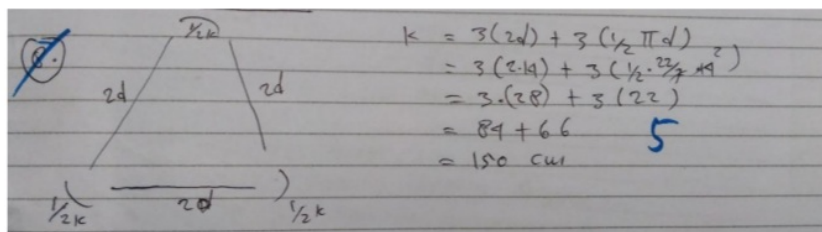 8.
1/2k
2d
2d
2d
1/2k
1/2k
K = 3(2d) + 3(1/2 πd)
= 3(2.14) + 3(1/2 . 22/7 . 14 2)
= 3.(28) + 3(22)
= 84 + 66
= 150 cm
5